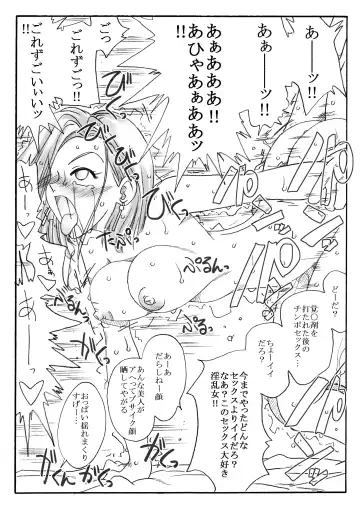 あーーッ!!
あぁーーッ!!
あぁああああ!!
あひゃあぁああッ
!!
ごっ
ごれずごっ!!
ごれずごいぃいッ
!!
びくっ
びくびくっ
たぷんっ
ぷるんっ
ぷるんっ
パンパンッ
パンッ
あーっ
どーだ?
覚〇剤を
打たれた後の
チンポセックス…
ちょーイイ
だろ?
今までやったどんな
セックスよりイイだろ?
なあ?このセックス大好き
淫乱女!!
あーあ
だらしねー顔
あんな美人が
アヘってブサイク顔
晒してやがる
おっぱい揺れまくり
すげー…
がくんっ
がくんっ